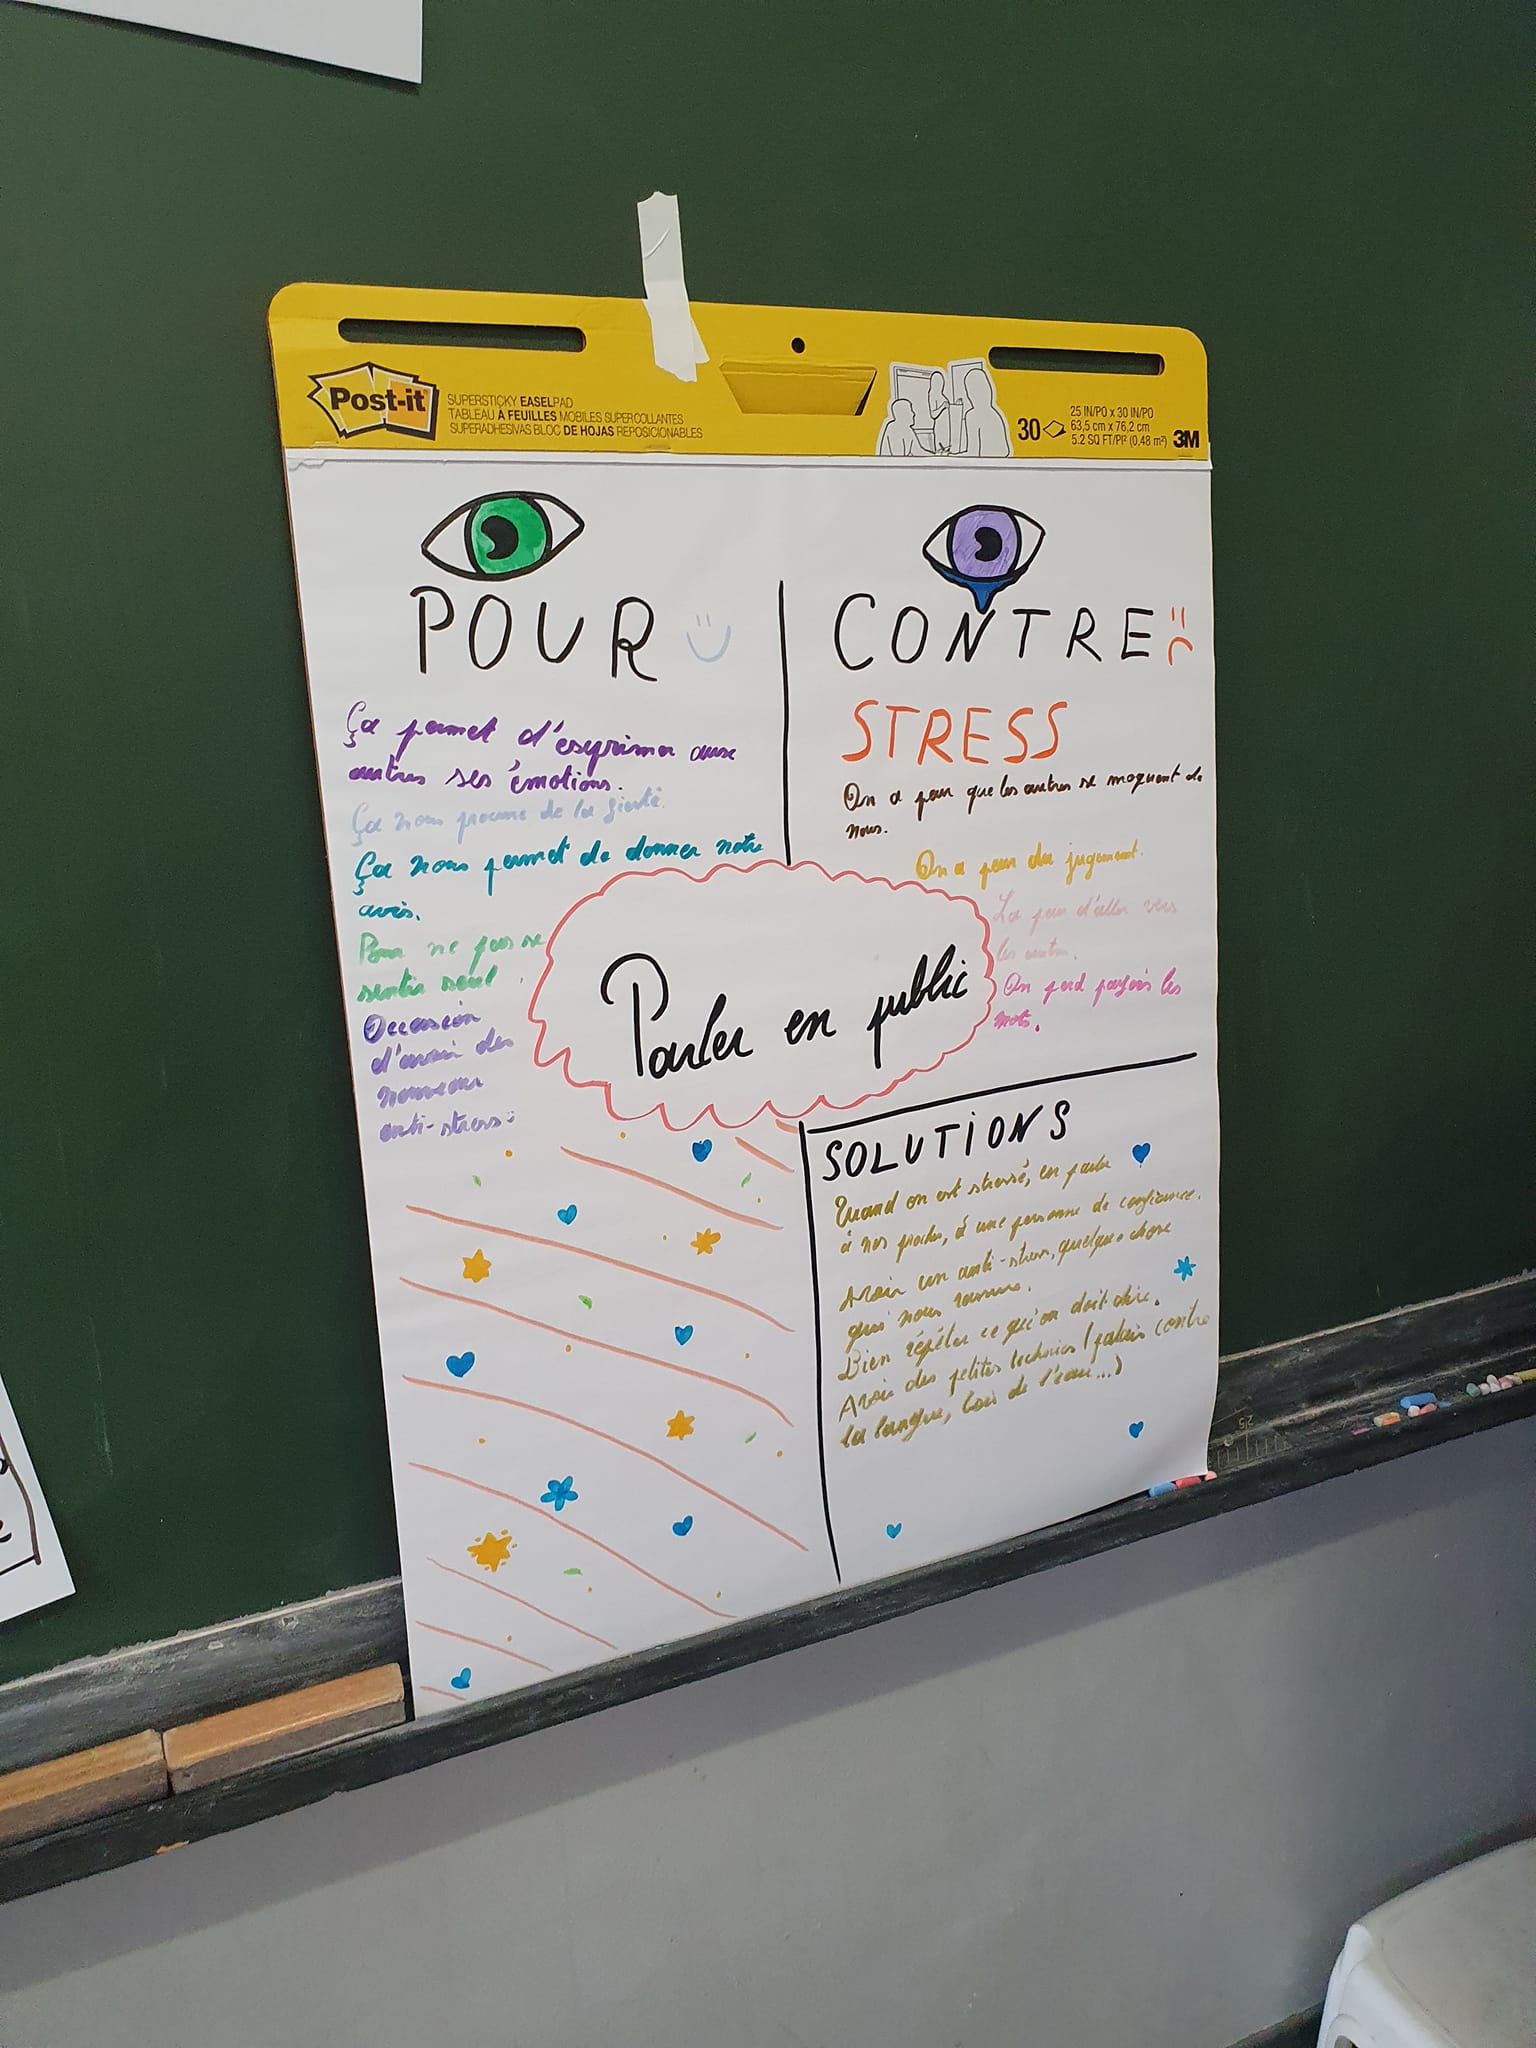 Post-it
SUPERSTICKY EASELPAD
TABLEAU À FEUILLES MOBILES SUPERCOLLANTES
SUPERADHESIVAS BLOC DE HOJAS REPOSICIONABLES
30
25 IN/PO x 30 IN/PO
63,5 cm x 76,2 cm
5.2 SQ FT/PI² (0,48 m²)
3M
POUR
Ça permet d'exprimer aux
autres ses émotions.
Ça nous procure de la fierté.
Ça nous permet de donner notre
avis.
Pour ne pas se
sentir seul.
Occasion
d'avoir des
nouveaux
anti-stress
CONTRE
STRESS
On a peur que les autres se moquent de
nous.
On a peur du jugement.
La peur d'aller vers
les autres.
On perd parfois les
mots.
Parler en public
SOLUTIONS
Quand on est stressé, en parler
à nos proches, à une personne de confiance.
Avoir un anti-stress, quelque chose
qui nous rassure.
Bien répéter ce qu'on doit dire.
Avoir des petites techniques (palais contre
la langue, bois de l'eau...)
25